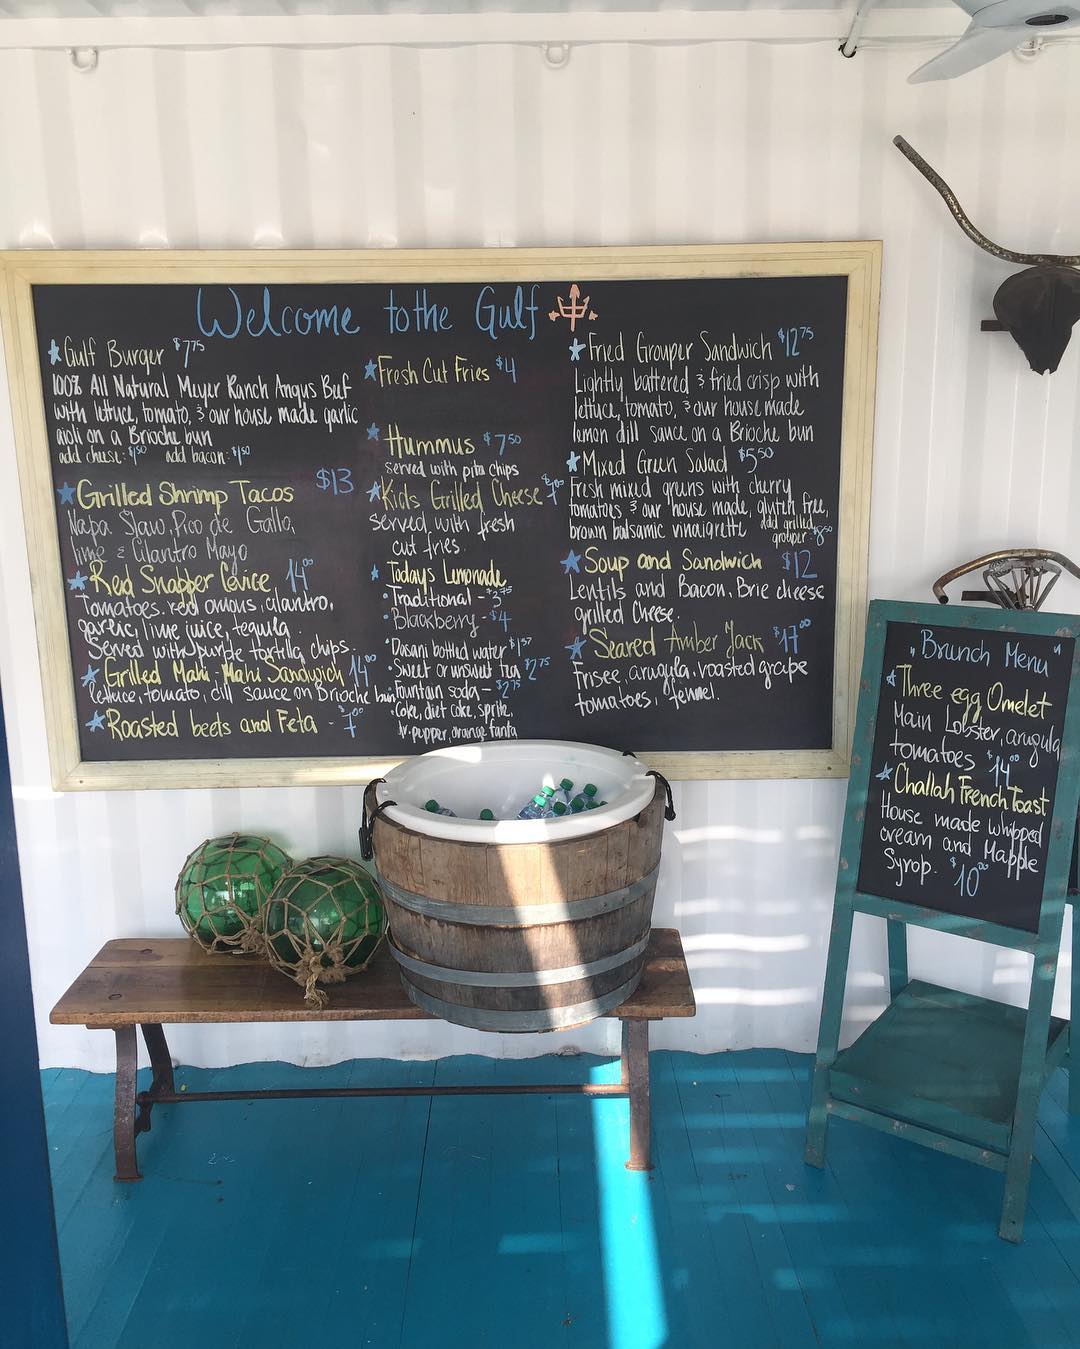 Welcome to the Gulf
Gulf Burger $7.75
100% All Natural Meyer Ranch Angus Beef
with lettuce, tomato, & our house made garlic
aioli on a Brioche bun
add cheese: $1.50 add bacon: $1.50
Grilled Shrimp Tacos $13
Napa Slaw, Pico de Gallo,
lime & Cilantro Mayo
Red Snapper Cevice 14.00
Tomatoes, red onions, cilantro,
garlic, lime juice, tequila.
Served with purple tortilla chips.
Grilled Mahi-Mahi Sandwich 14.00
lettuce, tomato, dill sauce on Brioche bun
Roasted beets and Feta - 7.00
Fresh Cut Fries $4
Hummus $7.50
served with pita chips
Kids Grilled Cheese
served with fresh
cut fries.
Todays Lemonade
• Traditional - $3.75
• Blackberry - $4
• Dasani bottled water
• Sweet or unsweet tea $2.75
• Fountain soda - $2.75
• Coke, diet coke, sprite,
dr. pepper, orange fanta
Fried Grouper Sandwich $12.75
Lightly battered & fried crisp with
lettuce, tomato, & our house made
lemon dill sauce on a Brioche bun
Mixed Green Salad $5.50
Fresh mixed gruns with cherry
tomatoes & our house made, gluten free,
brown balsamic vinaigrette add grilled
grouper: $8.50
Soup and Sandwich $12
Lentils and Bacon, Brie cheese
grilled Cheese.
Seared Amber Jack $17.00
Frisee, arugula, roasted grape
tomatoes, fennel.
"Brunch Menu"
Three egg Omelet
Main Lobster, arugula
tomatoes $14.00
Challah French Toast
House made whipped
cream and Mapple
Syrop. $10.00